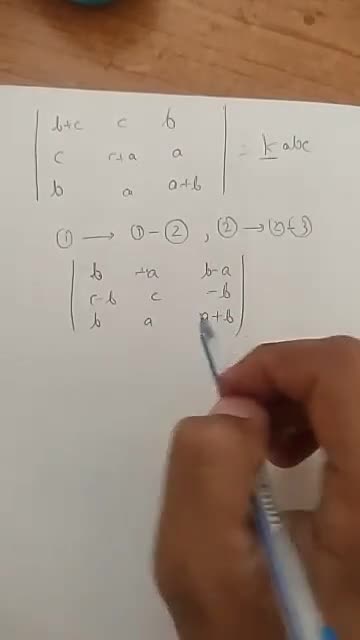 | b+c c b |
| c c+a a | = k abc
| b a a+b |
① → ① - ② , ② → ② - ③
| b -a b-a |
| c-b c -b |
| b a a+b |